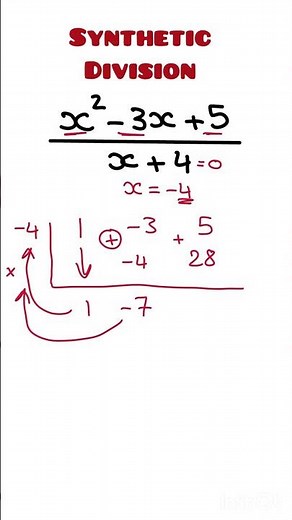 SYNTHETIC
DIVISION
x² - 3x + 5
x + 4 = 0
x = -4
-4 | 1 + -3 + 5
x -4 28
1 -7